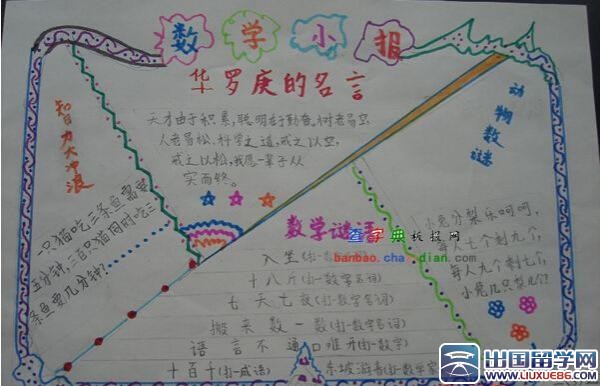 数学小报
华罗庚的名言
天才由于积累,聪明在于勤奋。树老易空,
人老易松,科学之道,戒之以空,
戒之以松,我愿一辈子从
实而终。
智力大冲浪
一只猫吃三条鱼需要
五分钟,三百只猫同时吃三
条鱼要几分钟?
动物数谜
小兔分梨乐呵呵,
每人七个剩九个,
每人九个剩七个,
小兔几只梨几个?
数学谜语
查字典板报网
banbao.chazidian.com
八 斤(打一数学名词)
七 天 七 夜(打一数学名词)
搬 来 数 一 数(打一数学名词)
语 言 不 通 口 难 开(打一数学)
十 百 千(打一成语)
东坡游春(打一数学家)
出国留学网
www.liuxue86.com